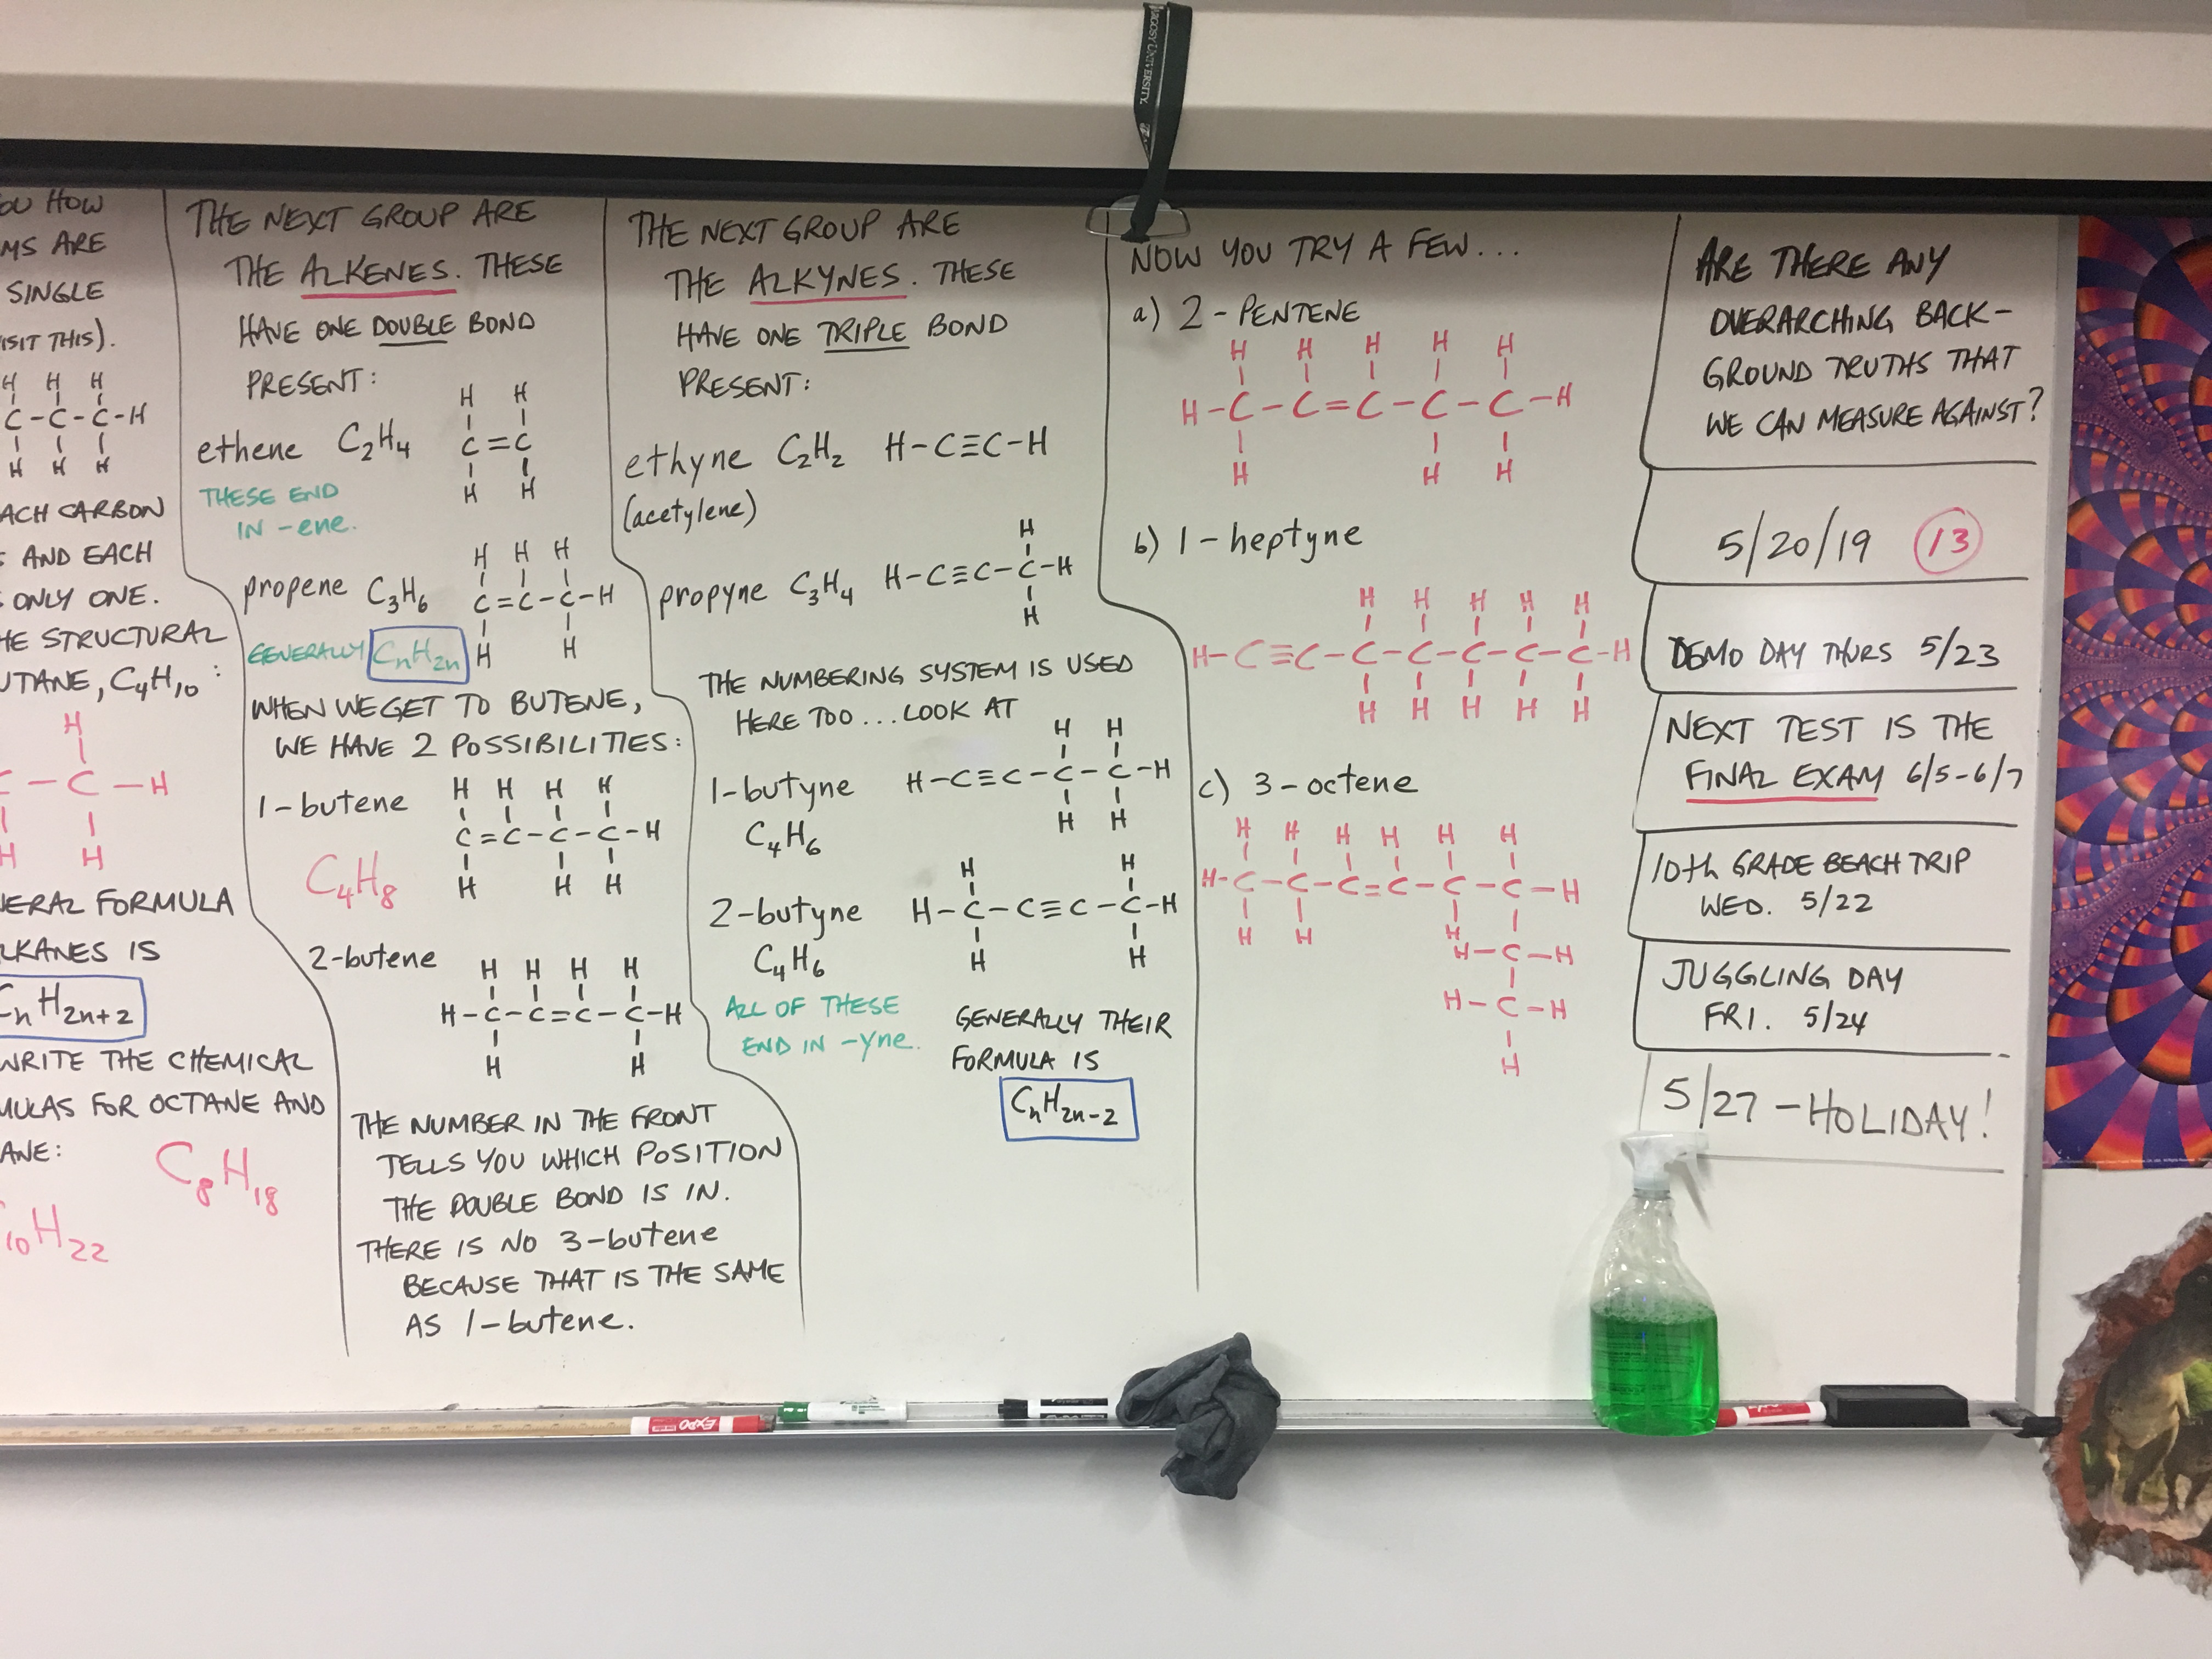 OU HOW
MS ARE
SINGLE
ISIT THIS).
H H H
C-C-C-H
H H H
ACH CARBON
AND EACH
ONLY ONE.
HE STRUCTURAL
UTANE, C₄H₁₀:
H
C-C-H
H H
NERAL FORMULA
LKANES IS
CₙH₂ₙ₊₂
WRITE THE CHEMICAL
MULAS FOR OCTANE AND
ANE:
C₈H₁₈
₁₀H₂₂
THE NEXT GROUP ARE
THE ALKENES. THESE
HAVE ONE DOUBLE BOND
PRESENT:
ethene C₂H₄
H H
C=C
H H
THESE END
IN -ene.
propene C₃H₆
H H H
C=C-C-H
H H
GENERALLY CₙH₂ₙ
WHEN WE GET TO BUTENE,
WE HAVE 2 POSSIBILITIES:
1-butene
H H H H
C=C-C-C-H
H H H
C₄H₈
2-butene
H H H H
H-C-C=C-C-H
H H
THE NUMBER IN THE FRONT
TELLS YOU WHICH POSITION
THE DOUBLE BOND IS IN.
THERE IS NO 3-butene
BECAUSE THAT IS THE SAME
AS 1-butene.
THE NEXT GROUP ARE
THE ALKYNES. THESE
HAVE ONE TRIPLE BOND
PRESENT:
ethyne C₂H₂ H-C≡C-H
(acetylene)
H
propyne C₃H₄ H-C≡C-C-H
H
THE NUMBERING SYSTEM IS USED
HERE TOO... LOOK AT
H H
1-butyne H-C≡C-C-C-H
C₄H₆ H H
H H
2-butyne H-C-C≡C-C-H
C₄H₆ H H
ALL OF THESE
END IN -yne.
GENERALLY THEIR
FORMULA IS
CₙH₂ₙ₋₂
NOW YOU TRY A FEW...
a) 2-PENTENE
H H H H H
H-C-C=C-C-C-H
H H H
b) 1-heptyne
H H H H H
H-C≡C-C-C-C-C-C-H
H H H H H
c) 3-octene
H H H H H H
H-C-C-C=C-C-C-H
H H H
H-C-H
H-C-H
H
ARE THERE ANY
OVERARCHING BACK-
GROUND TRUTHS THAT
WE CAN MEASURE AGAINST?
5/20/19 13
DEMO DAY THURS 5/23
NEXT TEST IS THE
FINAL EXAM 6/5-6/7
10th GRADE BEACH TRIP
WED. 5/22
JUGGLING DAY
FRI. 5/24
5/27-HOLIDAY!
ARGOSY UNIVERSITY.
EXPO